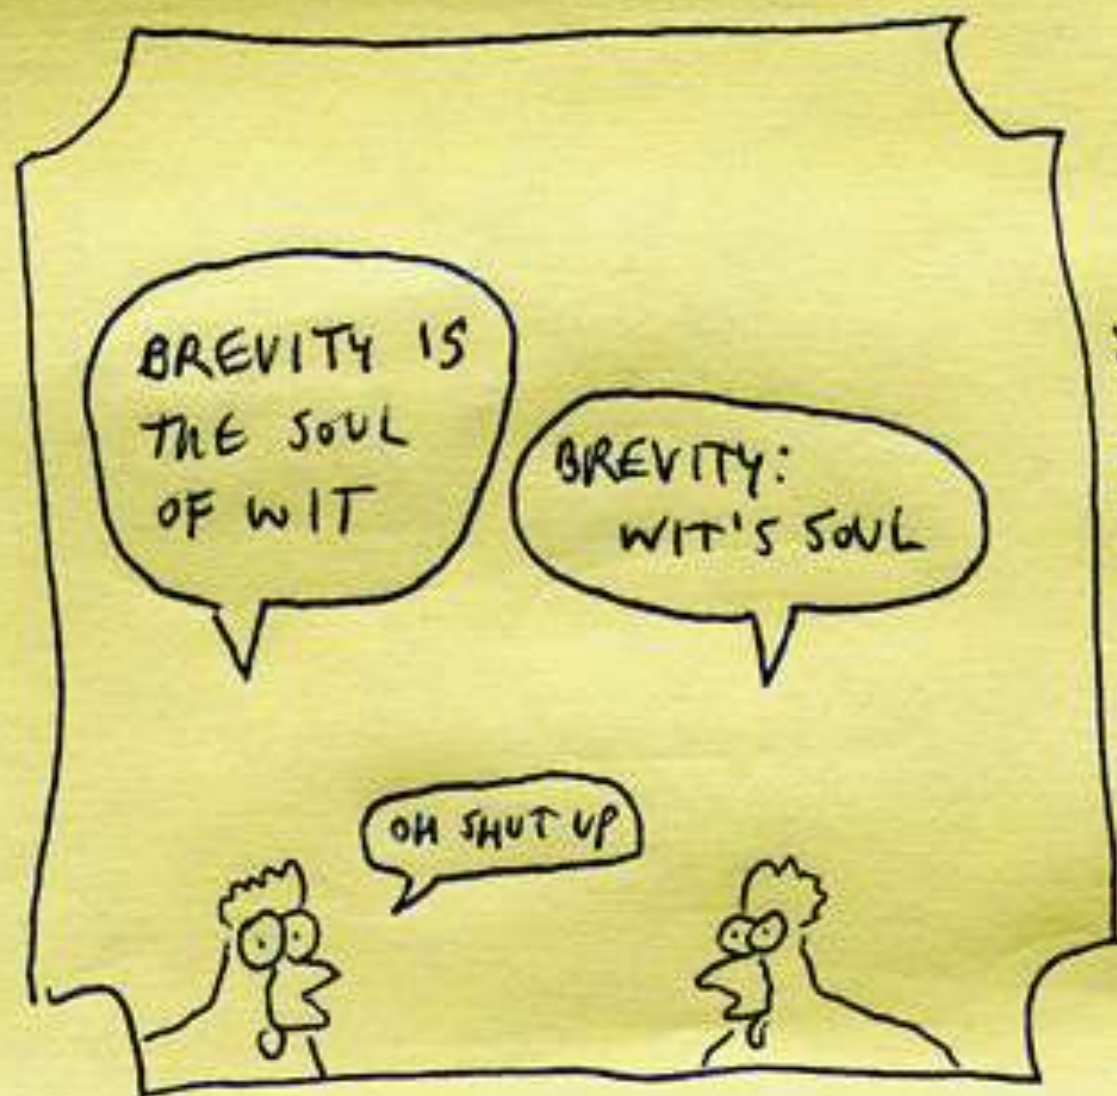 BREVITY IS
THE SOUL
OF WIT
BREVITY:
WIT'S SOUL
OH SHUT UP